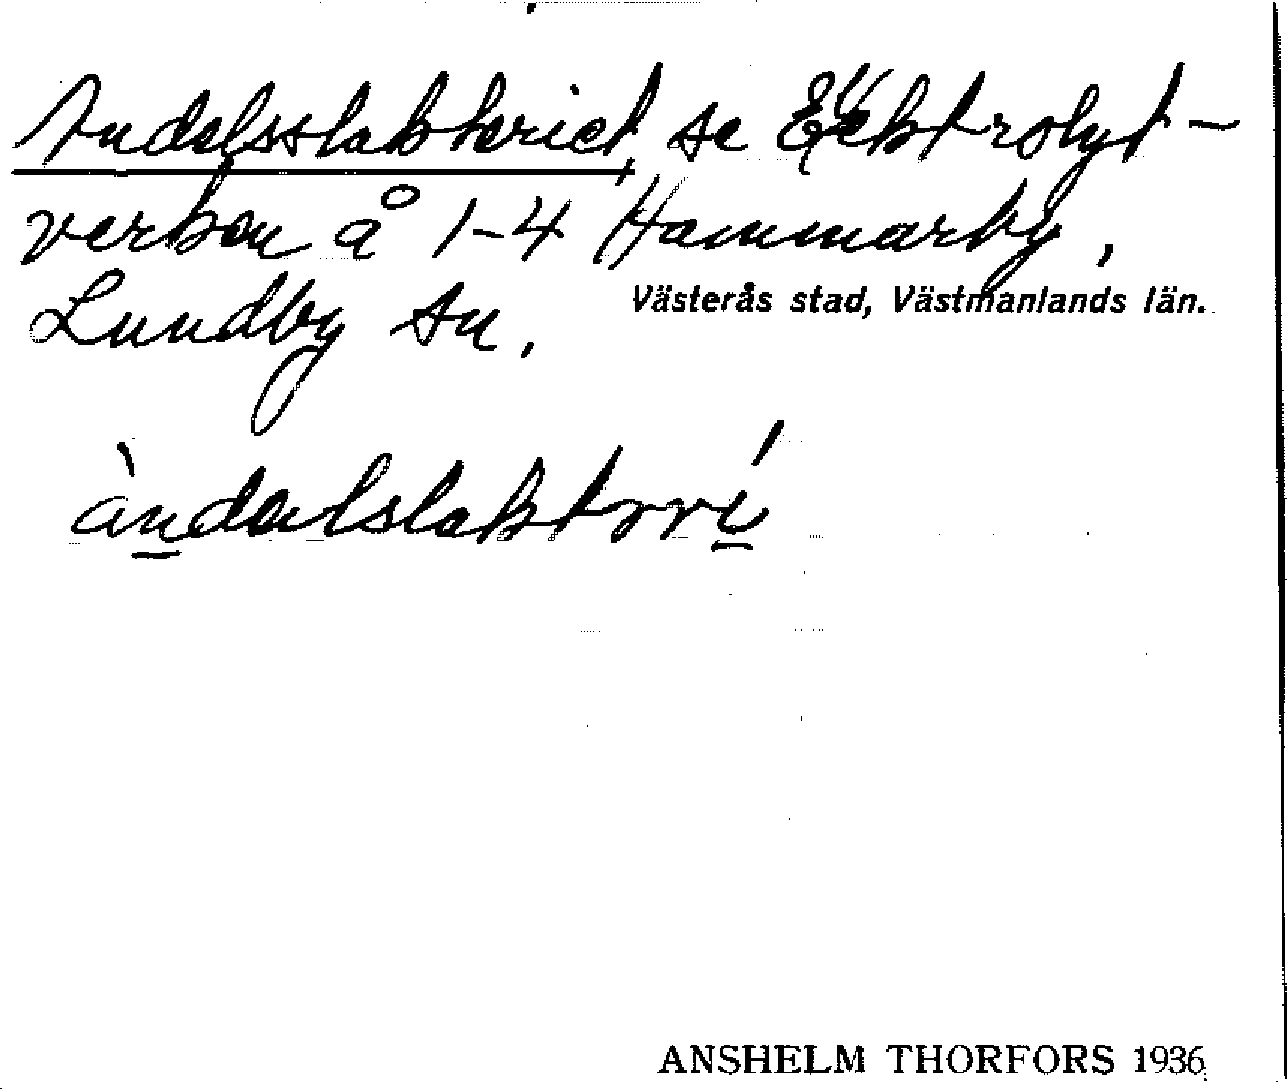 Andelsslakteriet, se Elektrolyt-
verken å 1-4 Hammarby,
Lundby sn. Västerås stad, Västmanlands län.
àndalslaktrí
ANSHELM THORFORS 1936